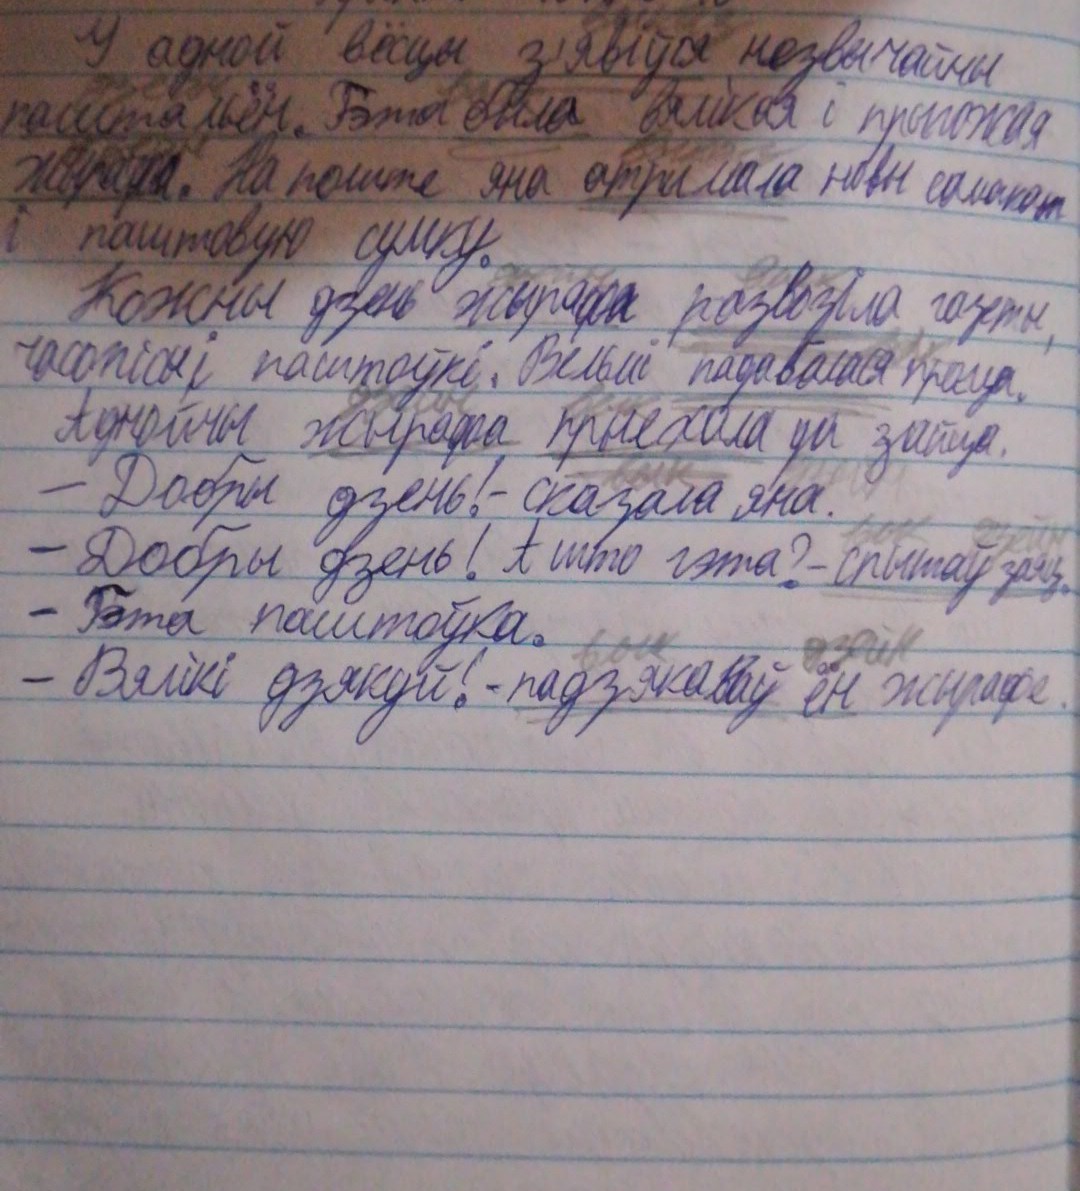 У адной вёсцы з'явіўся незвычайны
паштальён. Гэта была вялікая і прыгожая
жырафа. На пошце яна атрымала новы самакат
і паштовую сумку.
Кожны дзень жырафа развозіла газеты,
часопісы і паштоўкі. Вельмі падабалася праца.
Аднойчы жырафа прыехала да зайца.
– Добры дзень! - сказала яна.
– Добры дзень! А што гэта? - спытаў заяц.
– Гэта паштоўка.
– Вялікі дзякуй! - падзякаваў ён жырафе.